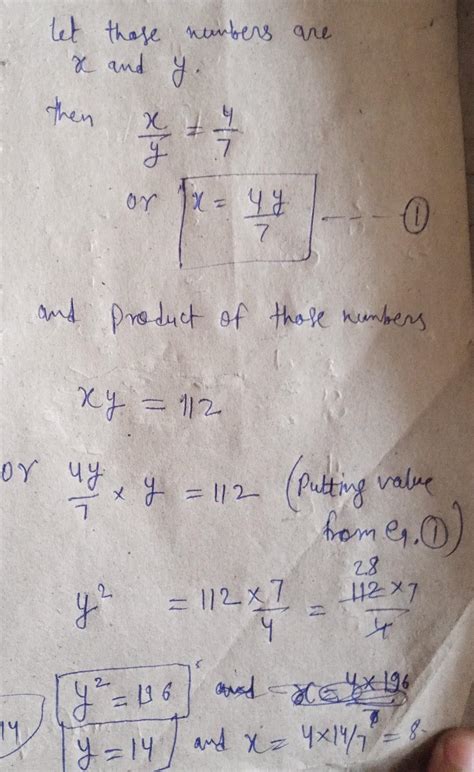 let those numbers are
x and y.
then x/y = 4/7
or x = 4y/7 ---- ①
and product of those numbers
xy = 112
or 4y/7 × y = 112 (Putting value
from eq. ①)
28
y² = 112 × 7/4 = 112 × 7/4
y² = 196 and
14
y = 14 and x = 4×14/7 = 8